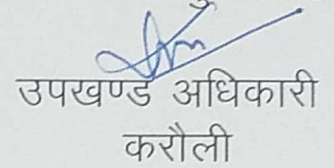 उपखण्ड अधिकारी
करौली